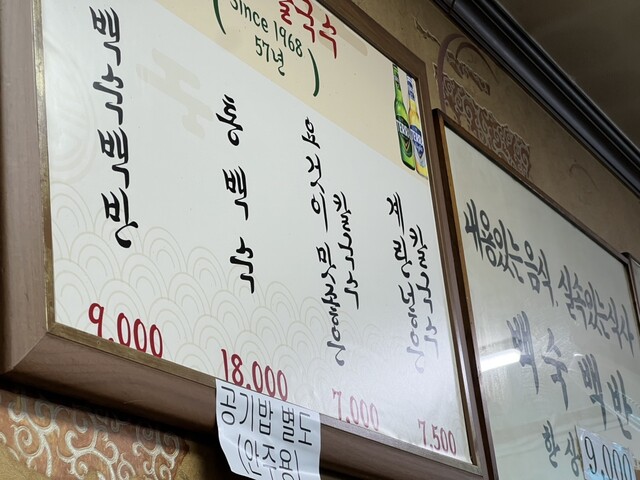 국수
Since 1968
57년
백숙백반
9.000
통백숙
18.000
요것이 맛좋은
칼국수
7.000
계란넣은
칼국수
7.500
공기밥 별도
(안주용)
내용있는 음식, 실속있는 식사
백숙백반
한상
9,000